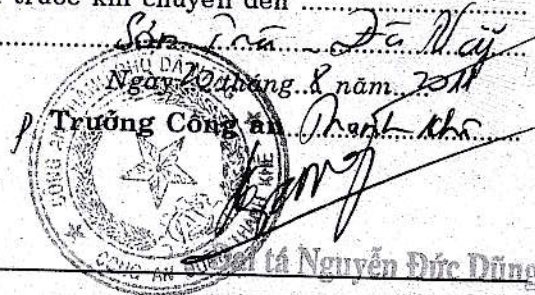 trước khi chuyển đến
Sơn Trà - Đà Nẵng
Ngày 20 tháng 8 năm 2011
Trưởng Công an Thanh Khê
CÔNG AN QUẬN THANH KHÊ
Đại tá Nguyễn Đức Dũng